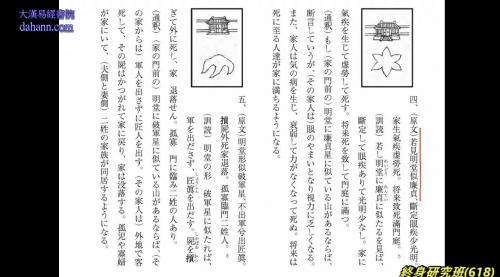 大漢易經書院
dahann.com
四、〔原文〕若見明堂似廉貞、斷定眼疾少光明。
家生氣疾虛勞死。將来致死滿門庭。
〔訓読〕若し明堂に廉貞に似たるを見ば、
斷定して眼疾ありて光明少なし。家に
氣疾を生じて虛勞して死す。将来死を致して門庭に滿つ。
〔通釈〕もし〔家の門前の〕明堂に廉貞星に似ている山があるならば、
断言しているが、〔その家人は〕眼のやまいとなり視力に乏しくなる。
また、家人は気の病を生じ、衰弱して力がなくなって死ぬ。将来は
死に至る人達が家に満ちるようになる。
五、〔原文〕明堂形似破軍星、不出軍兮出匠眞。
擯屍外死家退落。孤寡臨門二姓人。
〔訓読〕明堂の形 破軍星に似たれば、
軍を出だざず、匠眞を出だす。屍を擯
ぎて外に死し、家 退落せん。孤寡 門に臨み二姓の人あり。
〔通釈〕〔家の門前の〕明堂に破軍星に似ている山があるならば、〔そ
の家からは〕軍人を出さずに匠人を出す。〔その家人は〕外地で客
死して、その屍はかつがれて家に戻り、家は没落する。孤児や寡婦
が家にいて、〔夫側と妻側〕二姓の家族が同居するようになる。
終身研究班(618)